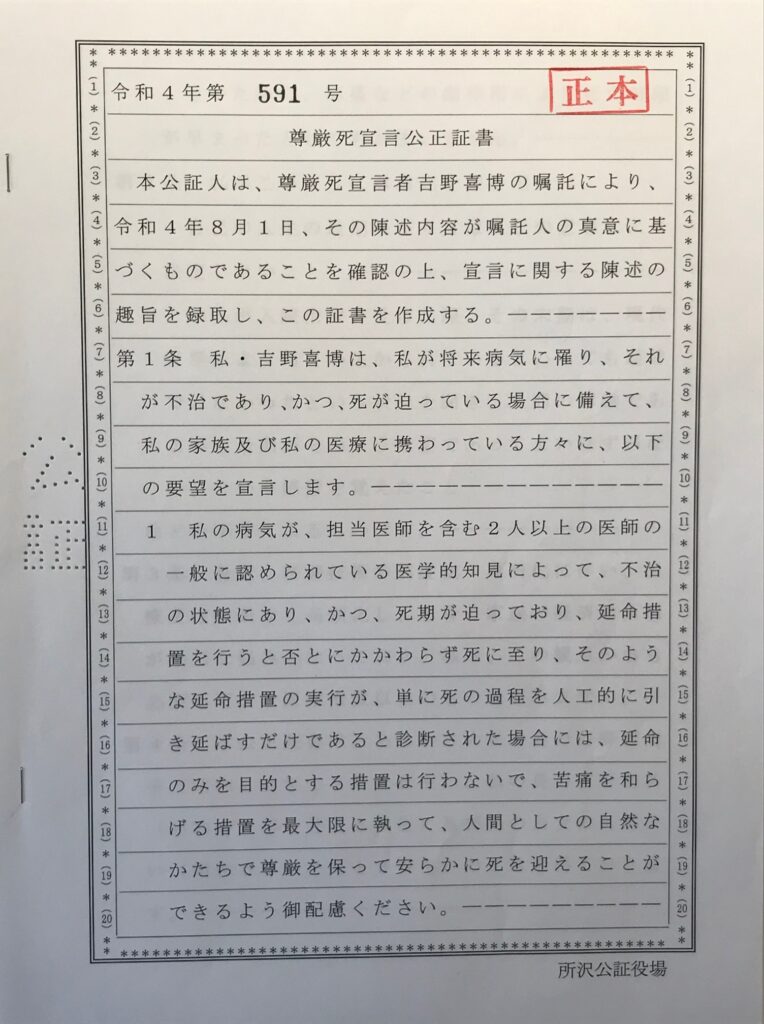 令和4年第 591 号
正本
尊厳死宣言公正証書
本公証人は、尊厳死宣言者吉野喜博の嘱託により、
令和4年8月1日、その陳述内容が嘱託人の真意に基
づくものであることを確認の上、宣言に関する陳述の
趣旨を録取し、この証書を作成する。――――――――
第1条 私・吉野喜博は、私が将来病気に罹り、それ
が不治であり、かつ、死が迫っている場合に備えて、
私の家族及び私の医療に携わっている方々に、以下
の要望を宣言します。―――――――――――――
1 私の病気が、担当医師を含む2人以上の医師の
一般に認められている医学的知見によって、不治
の状態にあり、かつ、死期が迫っており、延命措
置を行うと否とにかかわらず死に至り、そのよう
な延命措置の実行が、単に死の過程を人工的に引
き延ばすだけであると診断された場合には、延命
のみを目的とする措置は行わないで、苦痛を和ら
げる措置を最大限に執って、人間としての自然な
かたちで尊厳を保って安らかに死を迎えることが
できるよう御配慮ください。―――――――――
(1)
(2)
(3)
(4)
(5)
(6)
(7)
(8)
(9)
(10)
(11)
(12)
(13)
(14)
(15)
(16)
(17)
(18)
(19)
(20)
(1)
(2)
(3)
(4)
(5)
(6)
(7)
(8)
(9)
(10)
(11)
(12)
(13)
(14)
(15)
(16)
(17)
(18)
(19)
(20)
公証
所沢公証役場